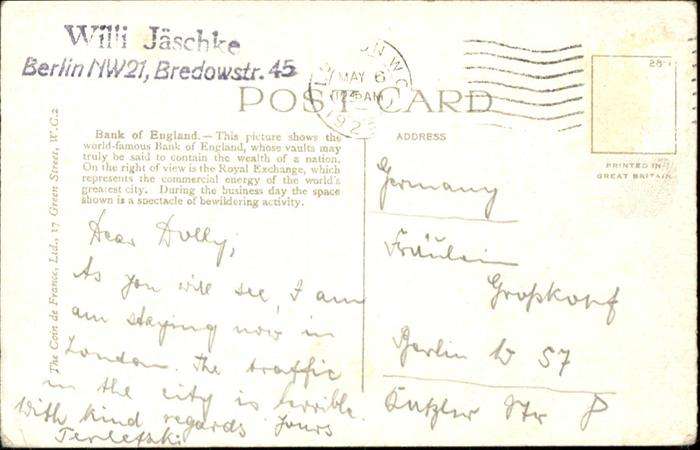 Willi Jäschke
Berlin NW21, Bredowstr. 45
LONDON W.C.
MAY 6
POST CARD
28·1
PRINTED IN
GREAT BRITAIN
The Coin de France, Ltd., 17 Green Street, W.C.2
Bank of England.—This picture shows the
world-famous Bank of England, whose vaults may
truly be said to contain the wealth of a nation.
On the right of view is the Royal Exchange, which
represents the commercial energy of the world's
greatest city. During the business day the space
shown is a spectacle of bewildering activity.
Dear Dolly,
As you will see, I am
am staying now in
London. The traffic
in the city is terrible.
With kind regards Yours
Terletzki
ADDRESS
Germany
Fräulein
Großkopf
Berlin W 57
Str